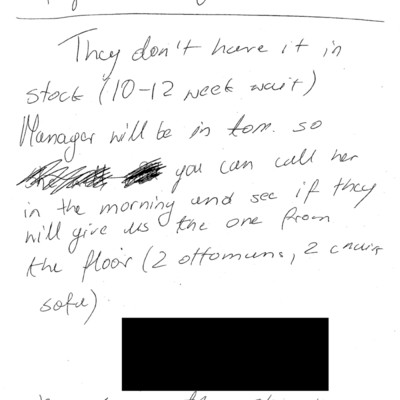 They don't have it in
stock (10-12 week wait)
Manager will be in tom. so
you can call her
in the morning and see if they
will give us the one from
the floor (2 ottomans, 2 chair
sofa)